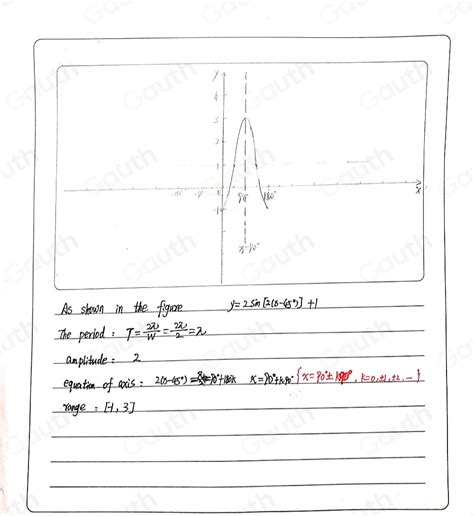 y
4
3
2
1
0 90° 180° x
-1
x=90°
As shown in the figure y=2 sin [2(x-45°)] +1
The period: T= 2π/w = 2π/2 = π
amplitude: 2
equation of axis: 2(x-45°) =90°+180k x=90°+k·90° {x=90°± k90°, k=0,±1,±2, ...}
range: [-1, 3]